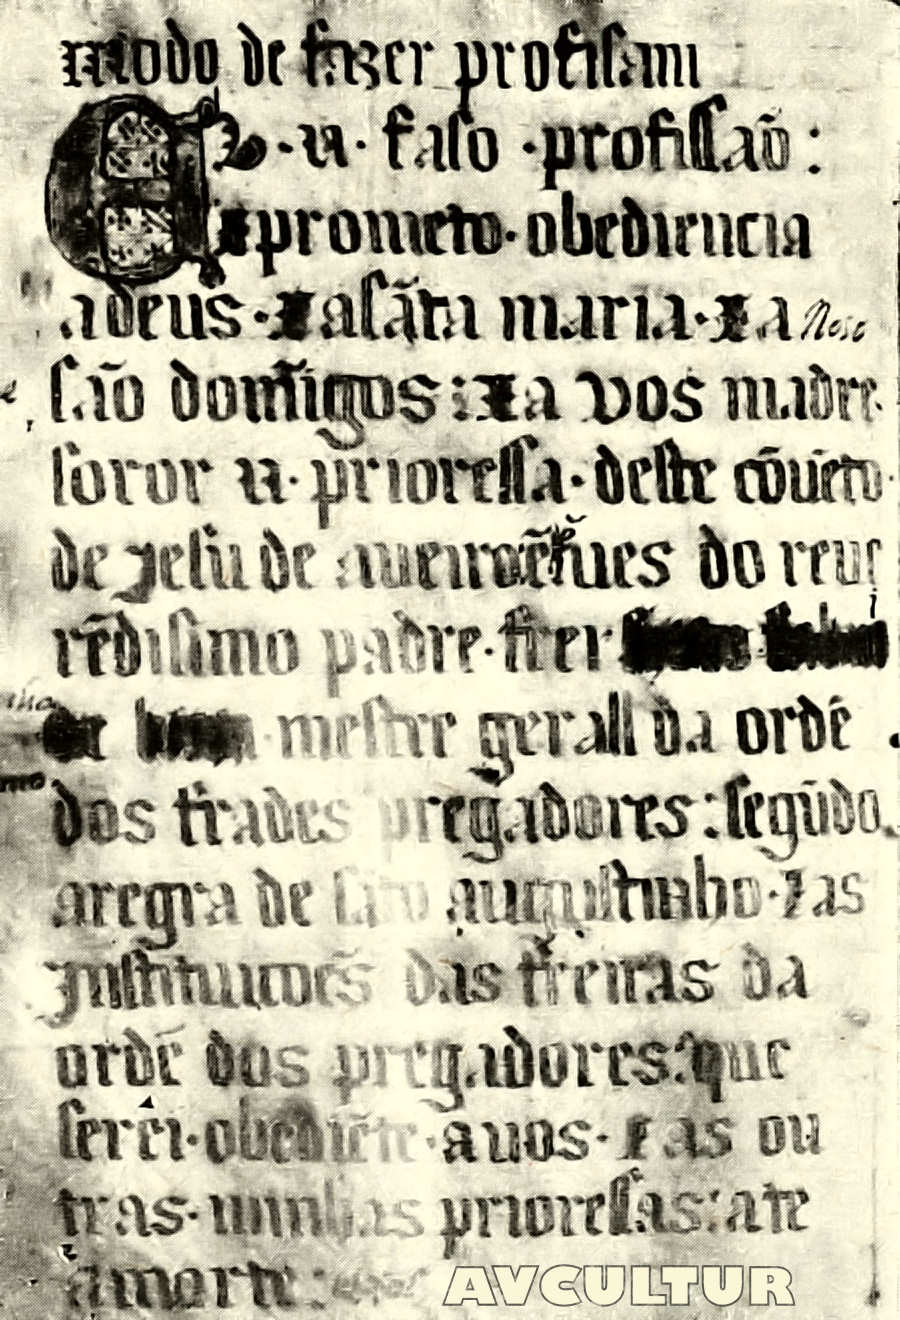 modo de fazer profisam
Eu .n. faso .profissaõ:
⁊ prometo. obediencia
a deus. ⁊ a sãta maria. ⁊ a noso
são domĩgos: ⁊ a vos madre
soror n. prioressa. deste cõuẽto
de Jesu de aueiro
rẽdisimo padre. frei
mestre gerall da ordẽ
dos frades pregadores: segũdo
a regra de sãto augustinho. ⁊ as
Jnstituicoẽs das freiras da
ordẽ dos pregadores: que
serei. obediẽte. a uos. ⁊ as ou
tras. minhas prioressas: ate
a morte:
AVCULTUR